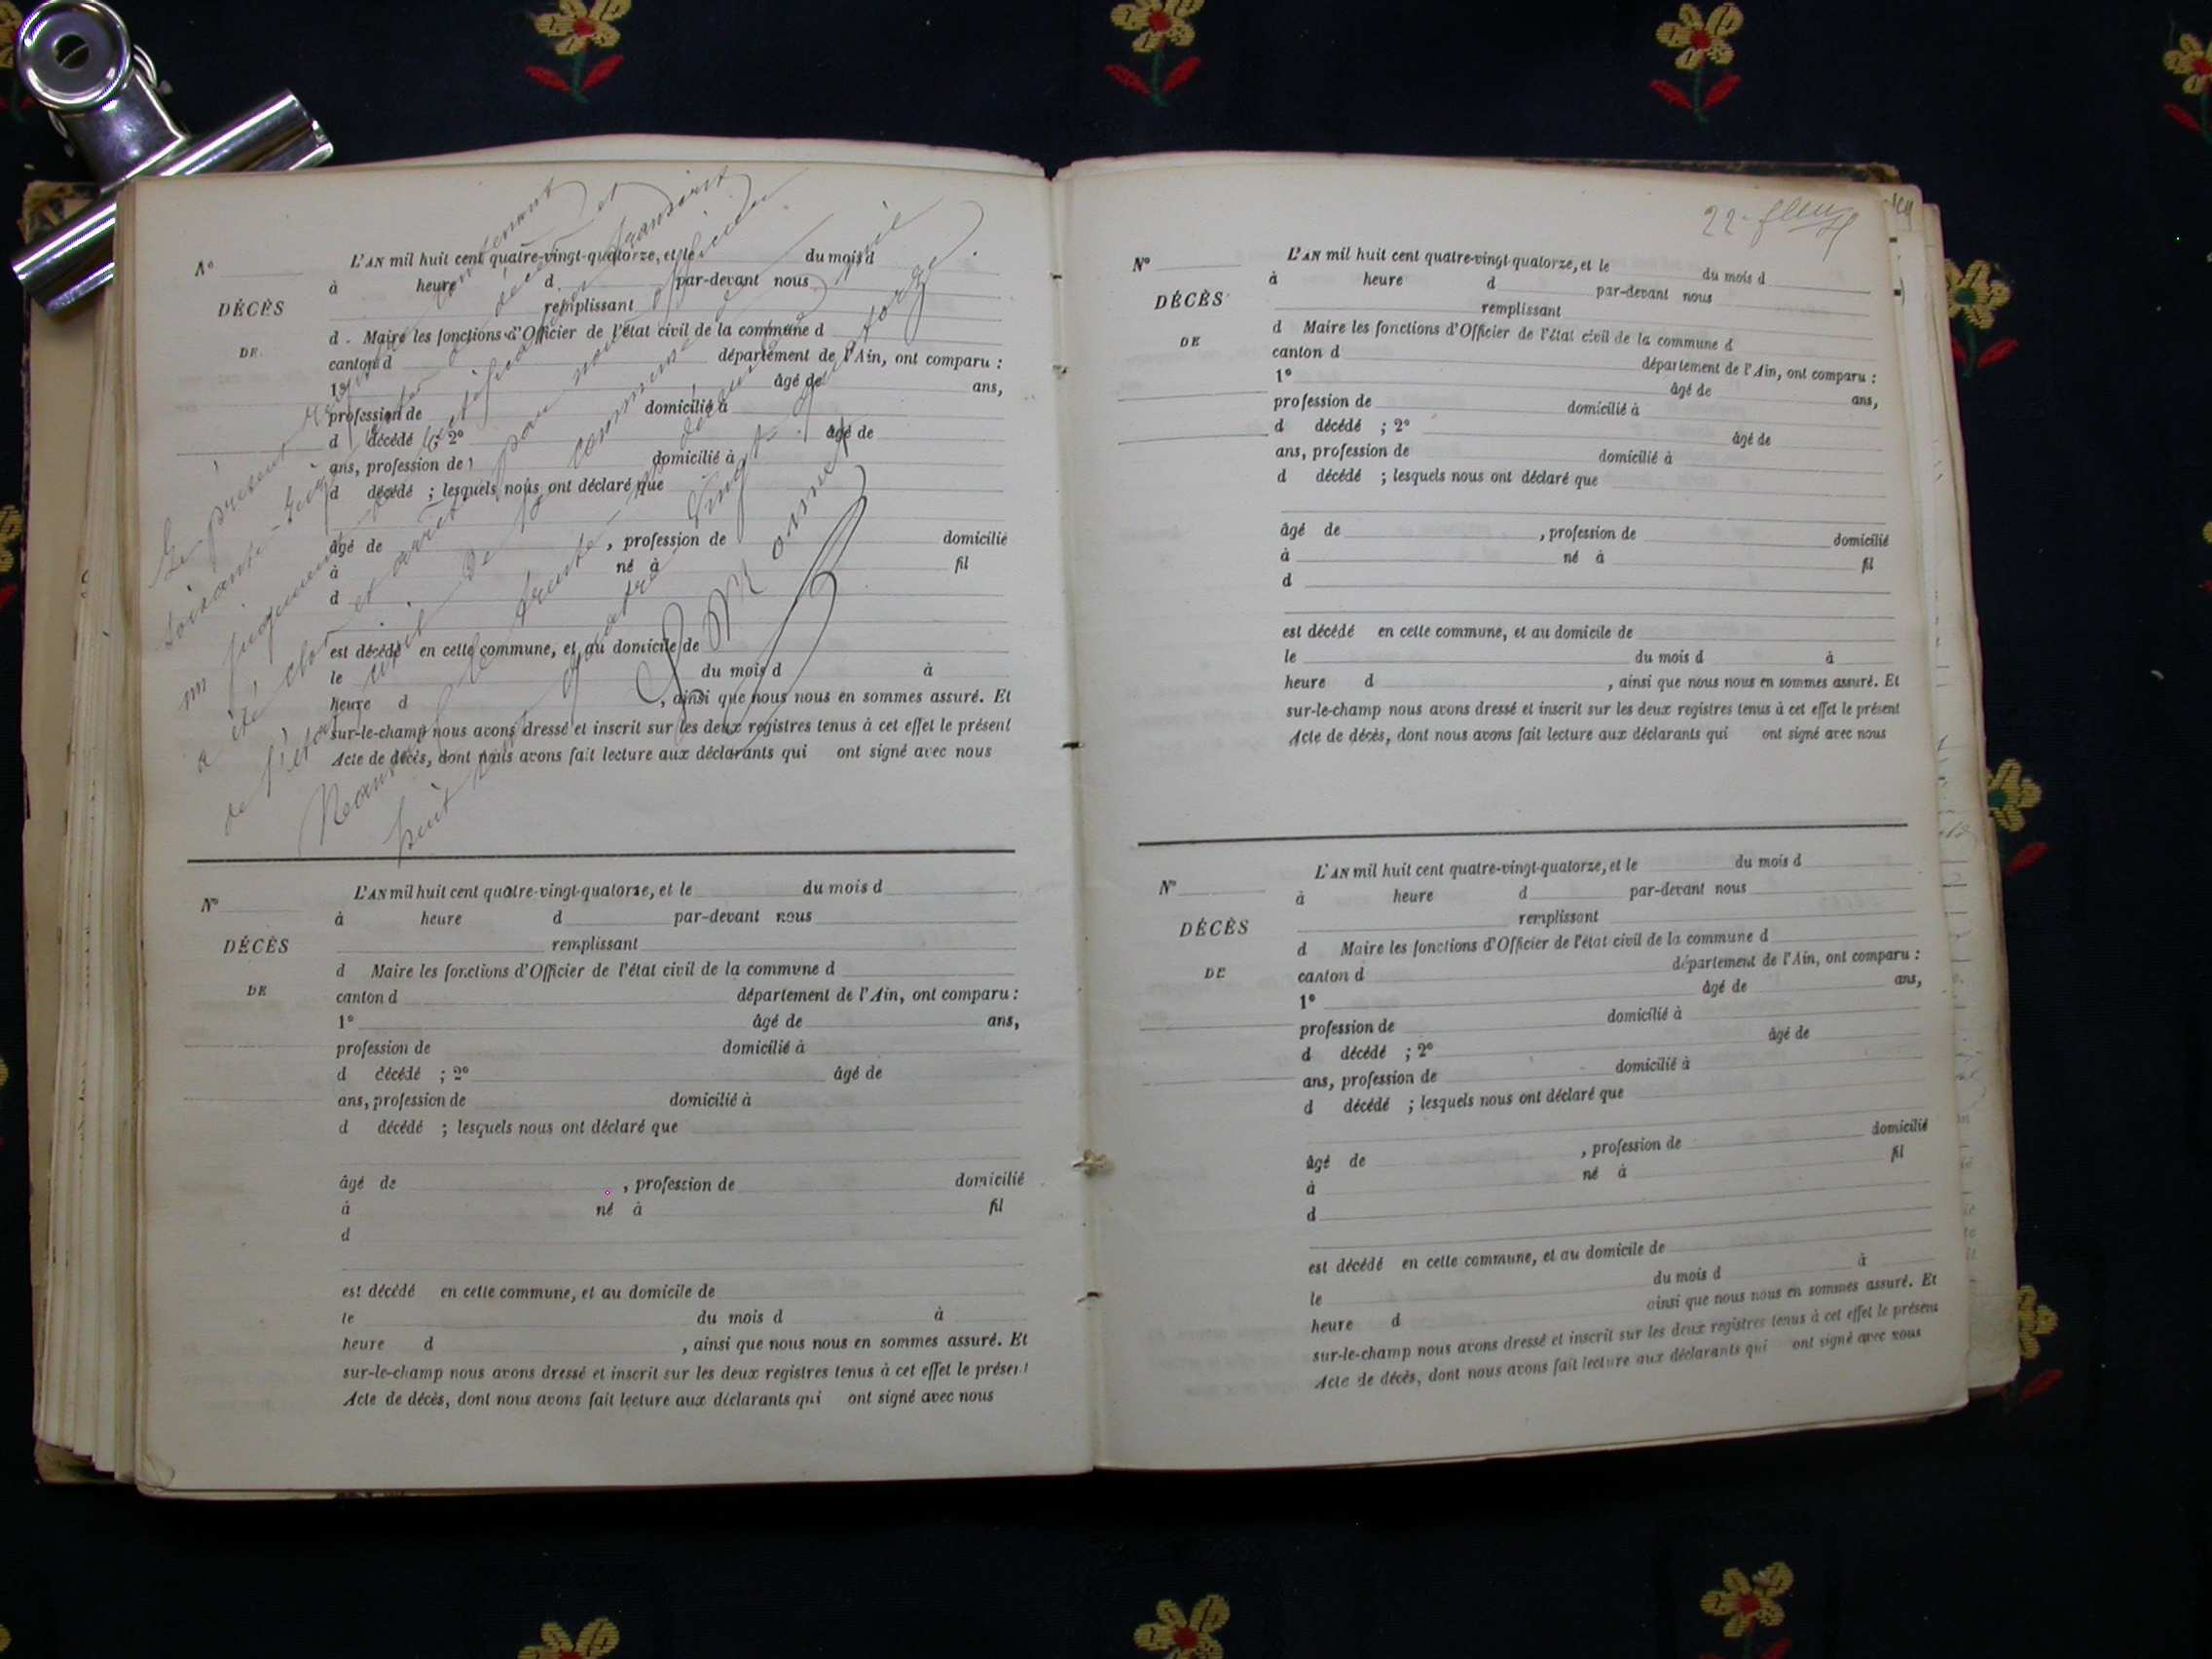 Le présent registre contenant
soixante-six actes de décès et
un jugement de rectification transcrit
a été clos et arrêté par nous officier
de l'état civil de la commune de
le trente-un décembre mil
huit cent quatre vingt-quatorze.
Monnet
N°
DÉCÈS
DE
L'AN mil huit cent quatre-vingt-quatorze, et le du mois d
à heure d par-devant nous
remplissant
d Maire les fonctions d'Officier de l'état civil de la commune d
canton d département de l'Ain, ont comparu :
1° âgé de ans,
profession de domicilié à
d décédé ; 2° âgé de
ans, profession de domicilié à
d décédé ; lesquels nous ont déclaré que
âgé de , profession de domicilié
à né à fil
d
est décédé en cette commune, et au domicile de
le du mois d à
heure d , ainsi que nous nous en sommes assuré. Et
sur-le-champ nous avons dressé et inscrit sur les deux registres tenus à cet effet le présent
Acte de décès, dont nous avons fait lecture aux déclarants qui ont signé avec nous
N°
DÉCÈS
DE
L'AN mil huit cent quatre-vingt-quatorze, et le du mois d
à heure d par-devant nous
remplissant
d Maire les fonctions d'Officier de l'état civil de la commune d
canton d département de l'Ain, ont comparu :
1° âgé de ans,
profession de domicilié à
d décédé ; 2° âgé de
ans, profession de domicilié à
d décédé ; lesquels nous ont déclaré que
âgé de , profession de domicilié
à né à fil
d
est décédé en cette commune, et au domicile de
le du mois d à
heure d , ainsi que nous nous en sommes assuré. Et
sur-le-champ nous avons dressé et inscrit sur les deux registres tenus à cet effet le présent
Acte de décès, dont nous avons fait lecture aux déclarants qui ont signé avec nous
22
N°
DÉCÈS
DE
L'AN mil huit cent quatre-vingt-quatorze, et le du mois d
à heure d par-devant nous
remplissant
d Maire les fonctions d'Officier de l'état civil de la commune d
canton d département de l'Ain, ont comparu :
1° âgé de ans,
profession de domicilié à
d décédé ; 2° âgé de
ans, profession de domicilié à
d décédé ; lesquels nous ont déclaré que
âgé de , profession de domicilié
à né à fil
d
est décédé en cette commune, et au domicile de
le du mois d à
heure d , ainsi que nous nous en sommes assuré. Et
sur-le-champ nous avons dressé et inscrit sur les deux registres tenus à cet effet le présent
Acte de décès, dont nous avons fait lecture aux déclarants qui ont signé avec nous
N°
DÉCÈS
DE
L'AN mil huit cent quatre-vingt-quatorze, et le du mois d
à heure d par-devant nous
remplissant
d Maire les fonctions d'Officier de l'état civil de la commune d
canton d département de l'Ain, ont comparu :
1° âgé de ans,
profession de domicilié à
d décédé ; 2° âgé de
ans, profession de domicilié à
d décédé ; lesquels nous ont déclaré que
âgé de , profession de domicilié
à né à fil
d
est décédé en cette commune, et au domicile de
le du mois d à
heure d ainsi que nous nous en sommes assuré. Et
sur-le-champ nous avons dressé et inscrit sur les deux registres tenus à cet effet le présent
Acte de décès, dont nous avons fait lecture aux déclarants qui ont signé avec nous